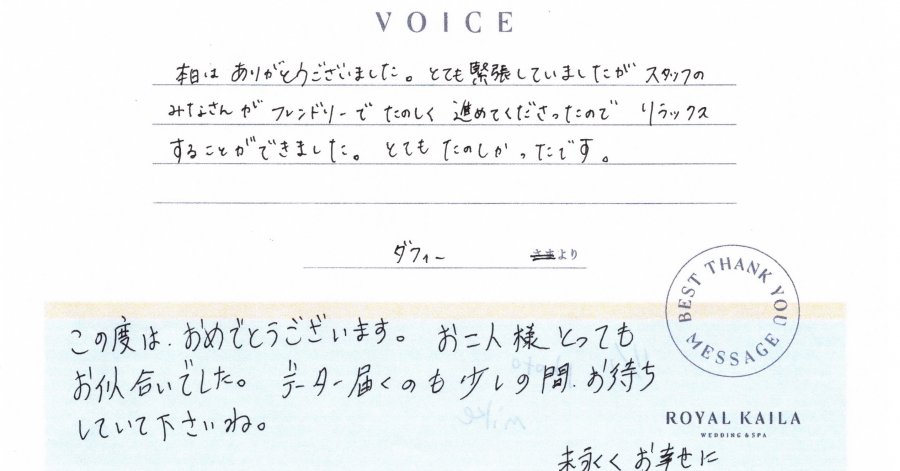 VOICE
本日は ありがとうございました。とても緊張していましたが スタッフの
みなさんが フレンドリーで たのしく 進めてくださったので リラックス
することができました。 とても たのしかったです。
ダフィー さまより
BEST THANK YOU MESSAGE
この度は、おめでとうございます。 お二人様とっても
お似合いでした。 データー届くのも少しの間、お待ち
していて下さいね。
ROYAL KAILA
WEDDING & SPA
末永く お幸せに